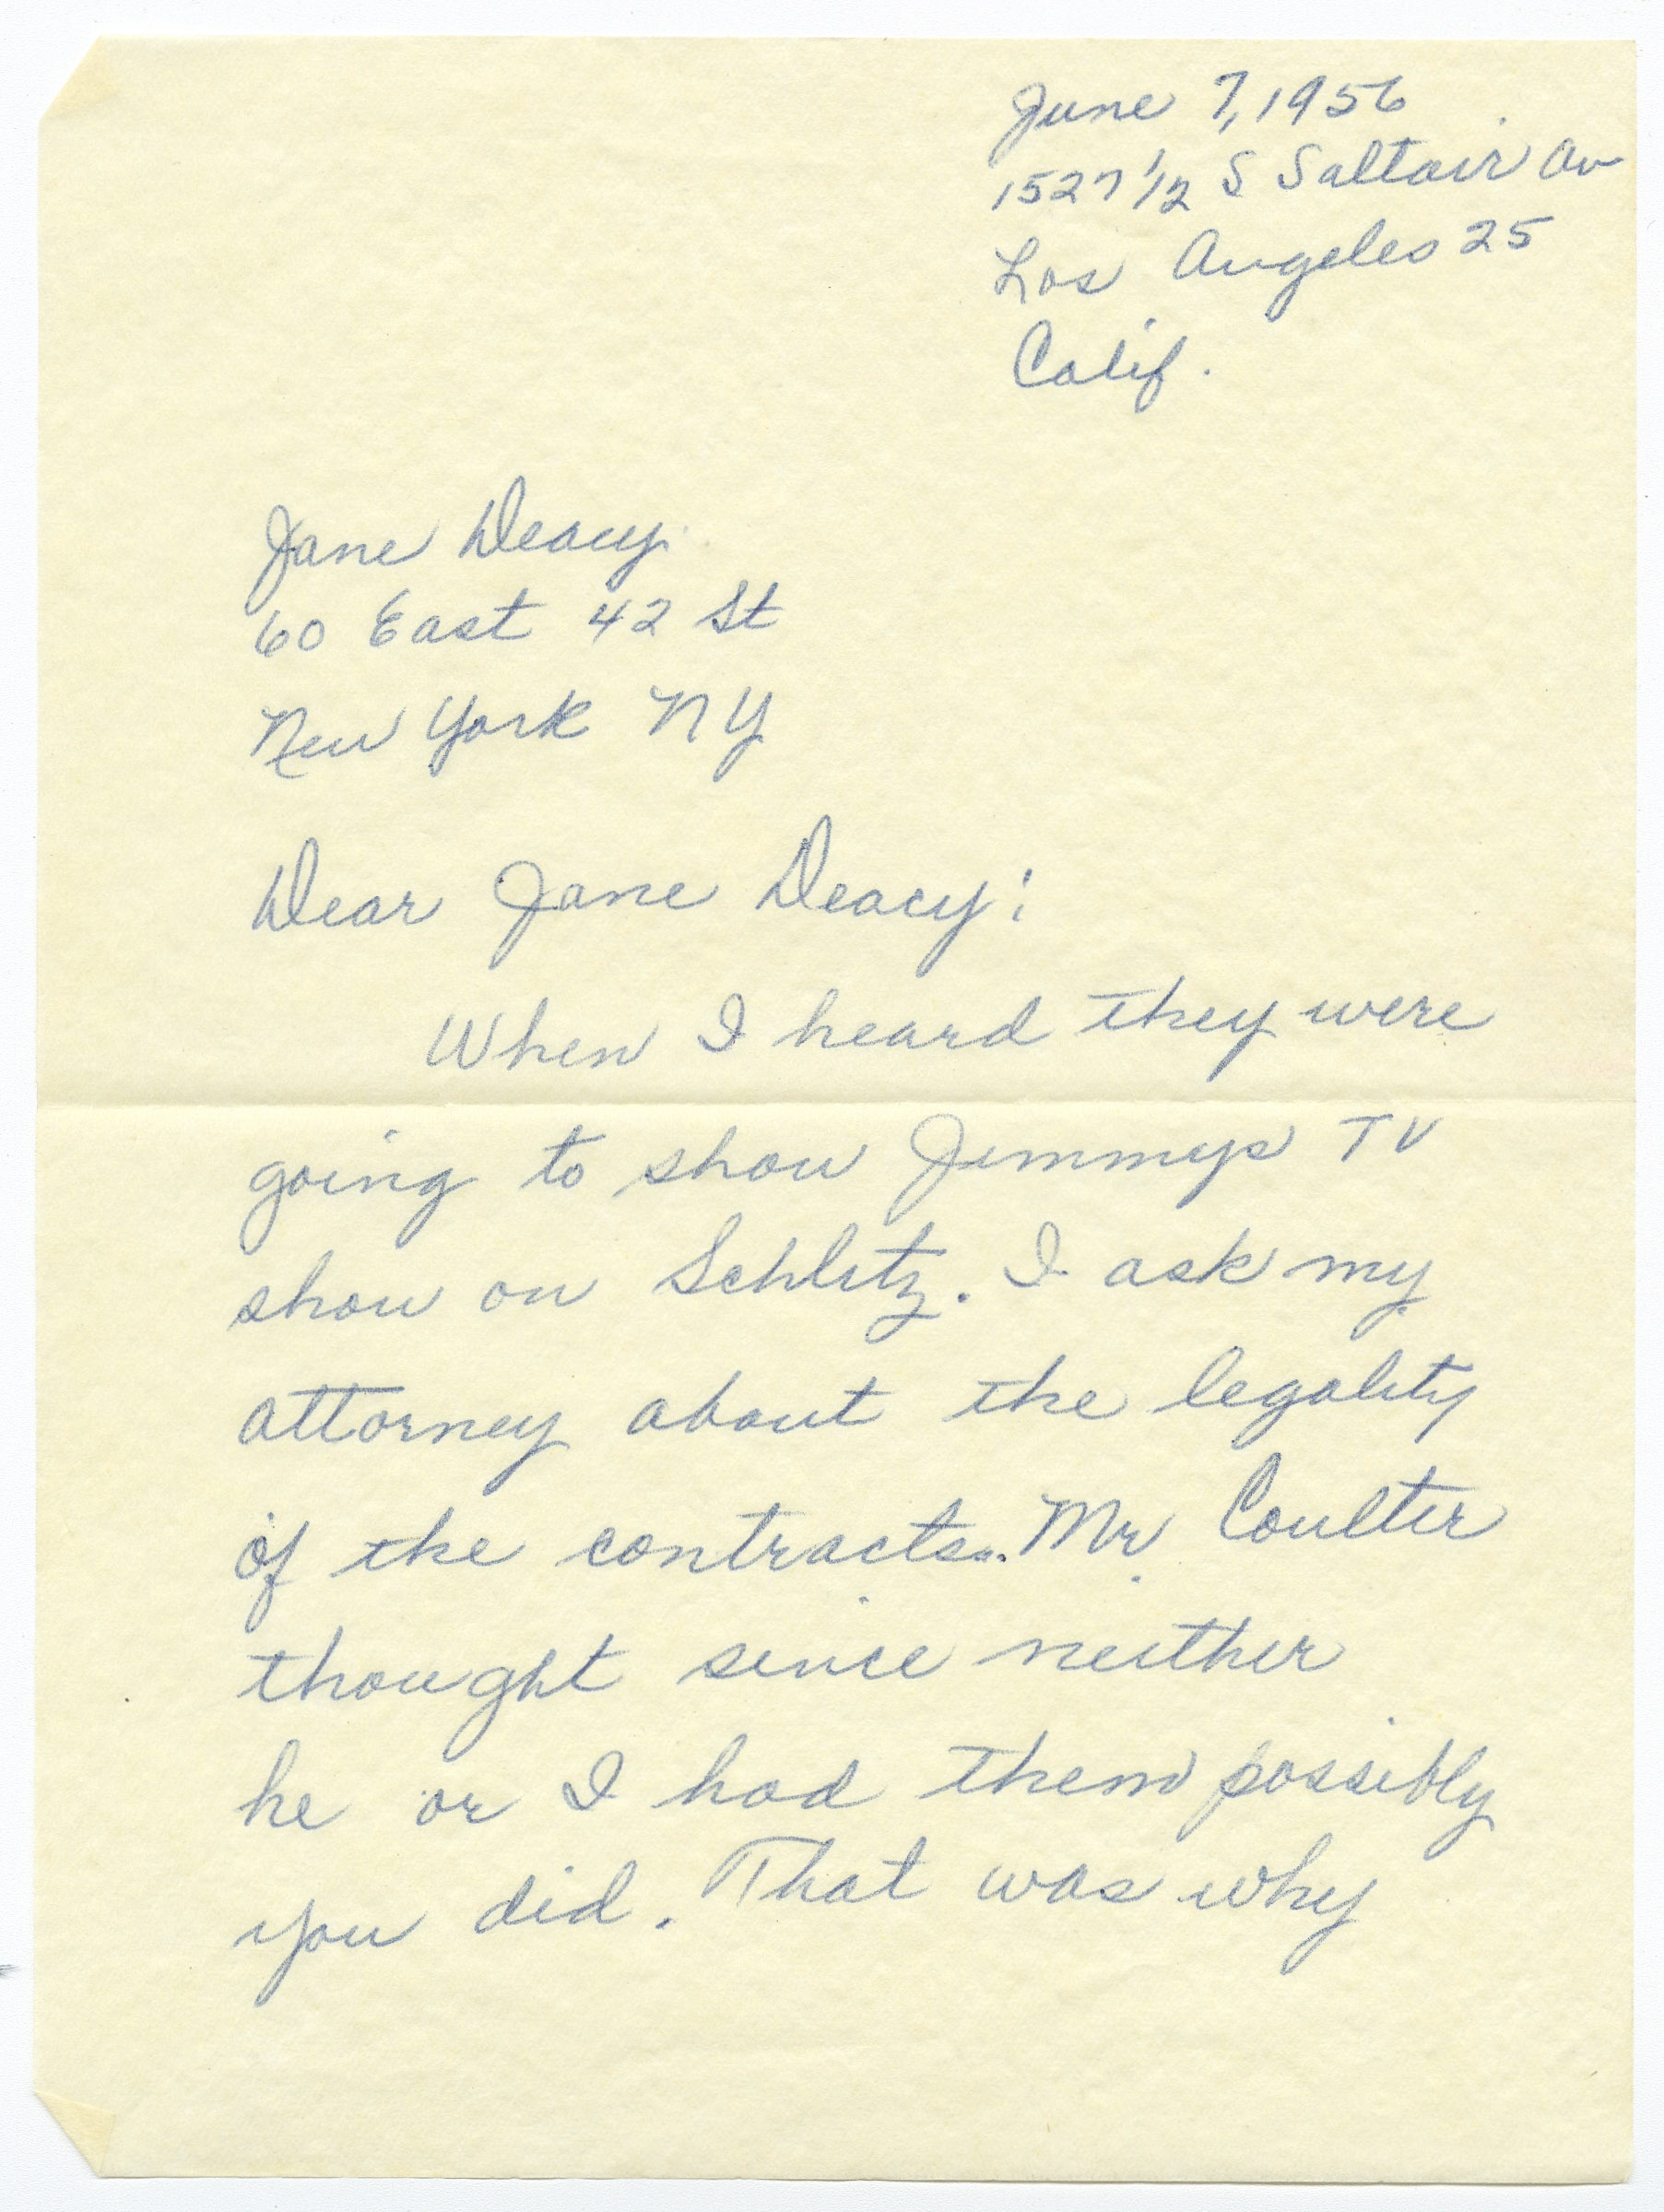 June 7, 1956
1527 1/2 S Saltair Av
Los Angeles 25
Calif.
Jane Deacy
60 East 42 St
New York NY
Dear Jane Deacy:
When I heard they were
going to show Jimmys TV
show on Schlitz. I ask my
attorney about the legality
of the contracts... Mr. Coulter
thought since neither
he or I had them possibly
you did. That was why